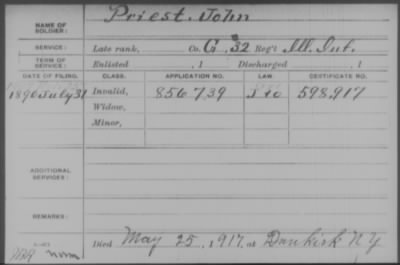 NAME OF SOLDIER: Priest, John
SERVICE: Late rank, Co. G, 32 Reg't Ill. Inf.
TERM OF SERVICE: Enlisted , 1 Discharged , 1
DATE OF FILING. CLASS. APPLICATION NO. LAW. CERTIFICATE NO.
1890 July 31 Invalid, 856739 598,917
Widow,
Minor,
ADDITIONAL SERVICES:
REMARKS:
Died May 25, 1917, at Dunkirk N.Y